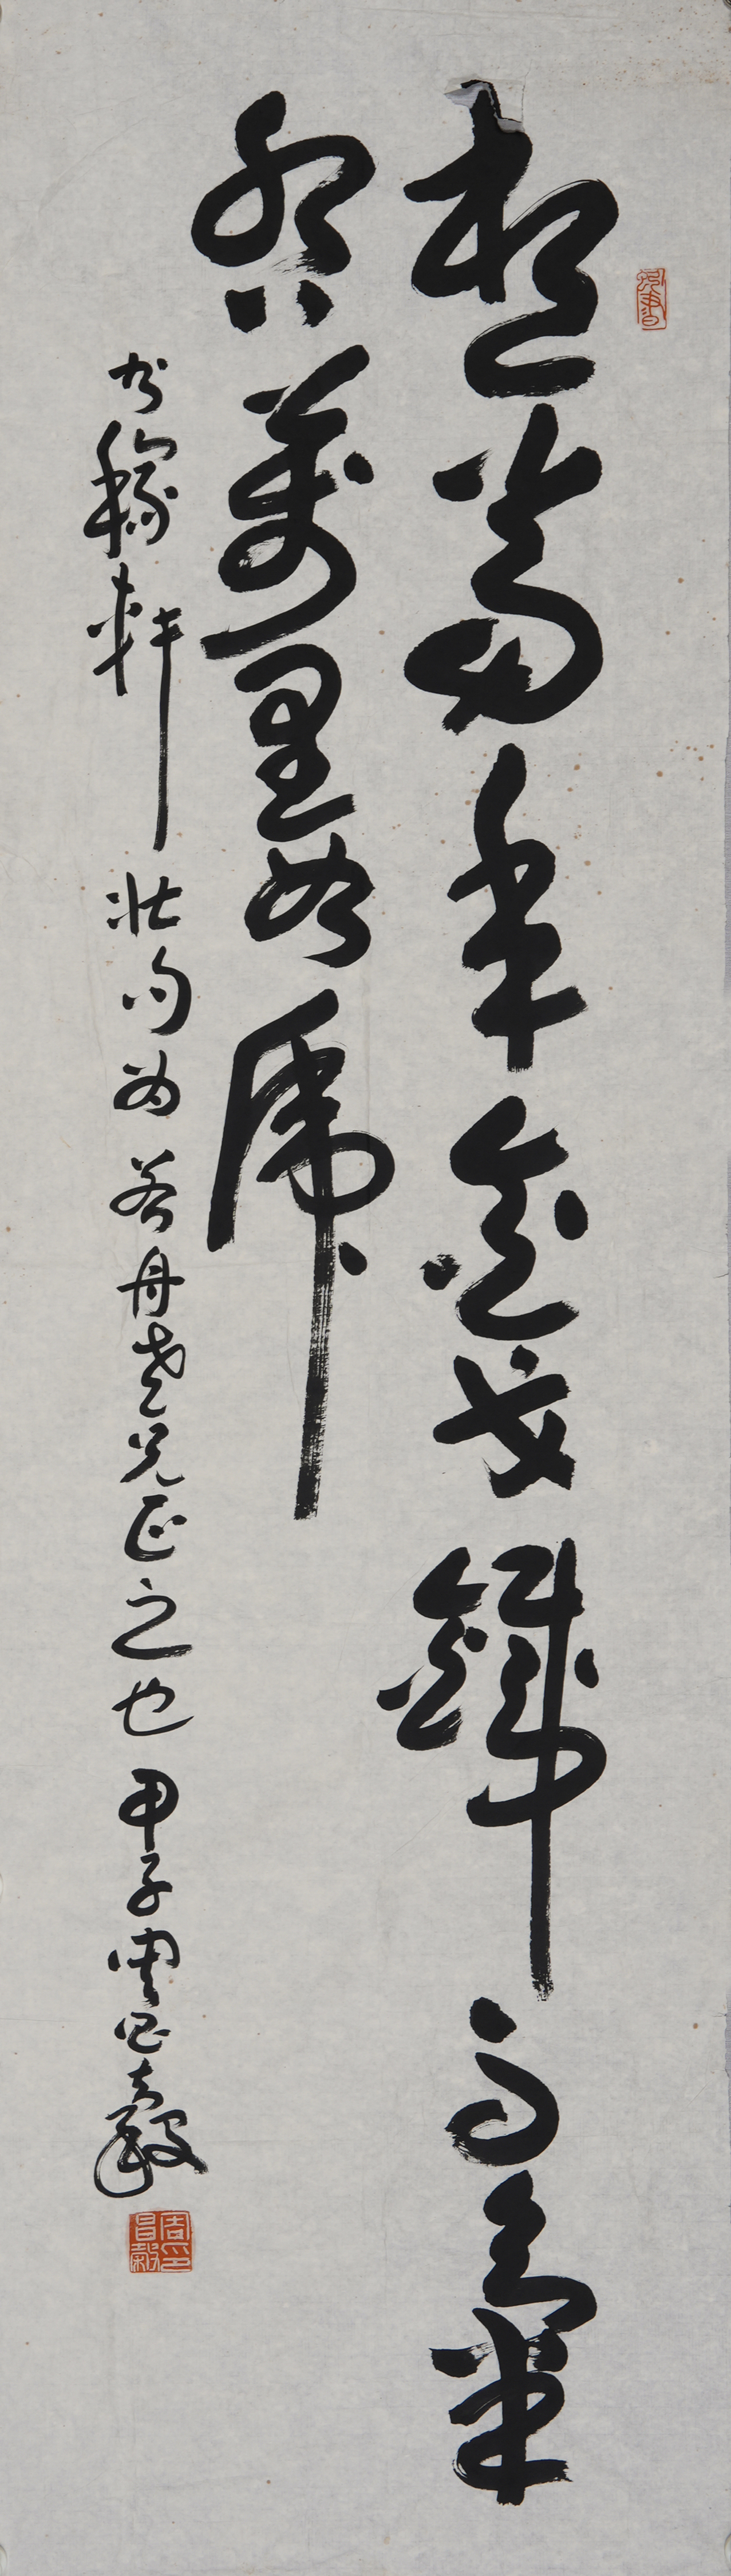 想當年金戈鐵馬氣
吞萬里如虎
書稼軒壯句為若丹老兄正之也甲子周昌穀
周印昌穀